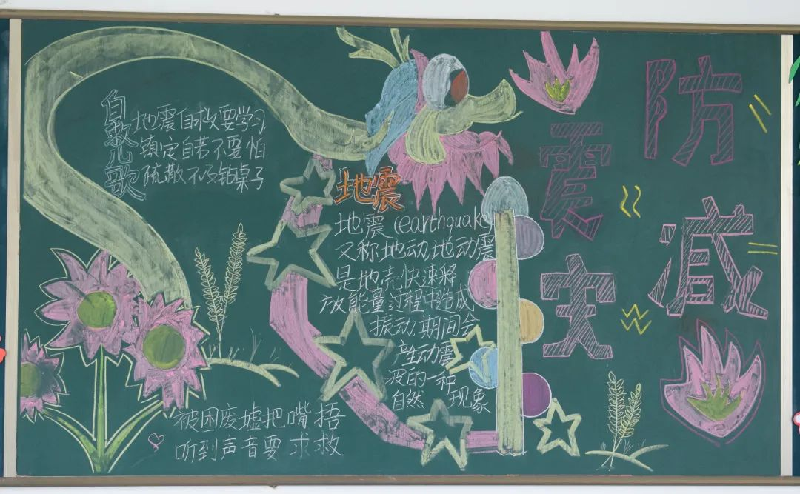 防震减灾
自救儿歌
地震自救要学习
镇定自若不要怕
地震
地震(earthquake)
又称地动,地动震
是地壳快速释
放能量过程中造成
振动,期间会
产生动震
波的一种
自然 现象
被困废墟把嘴捂
听到声音要求救